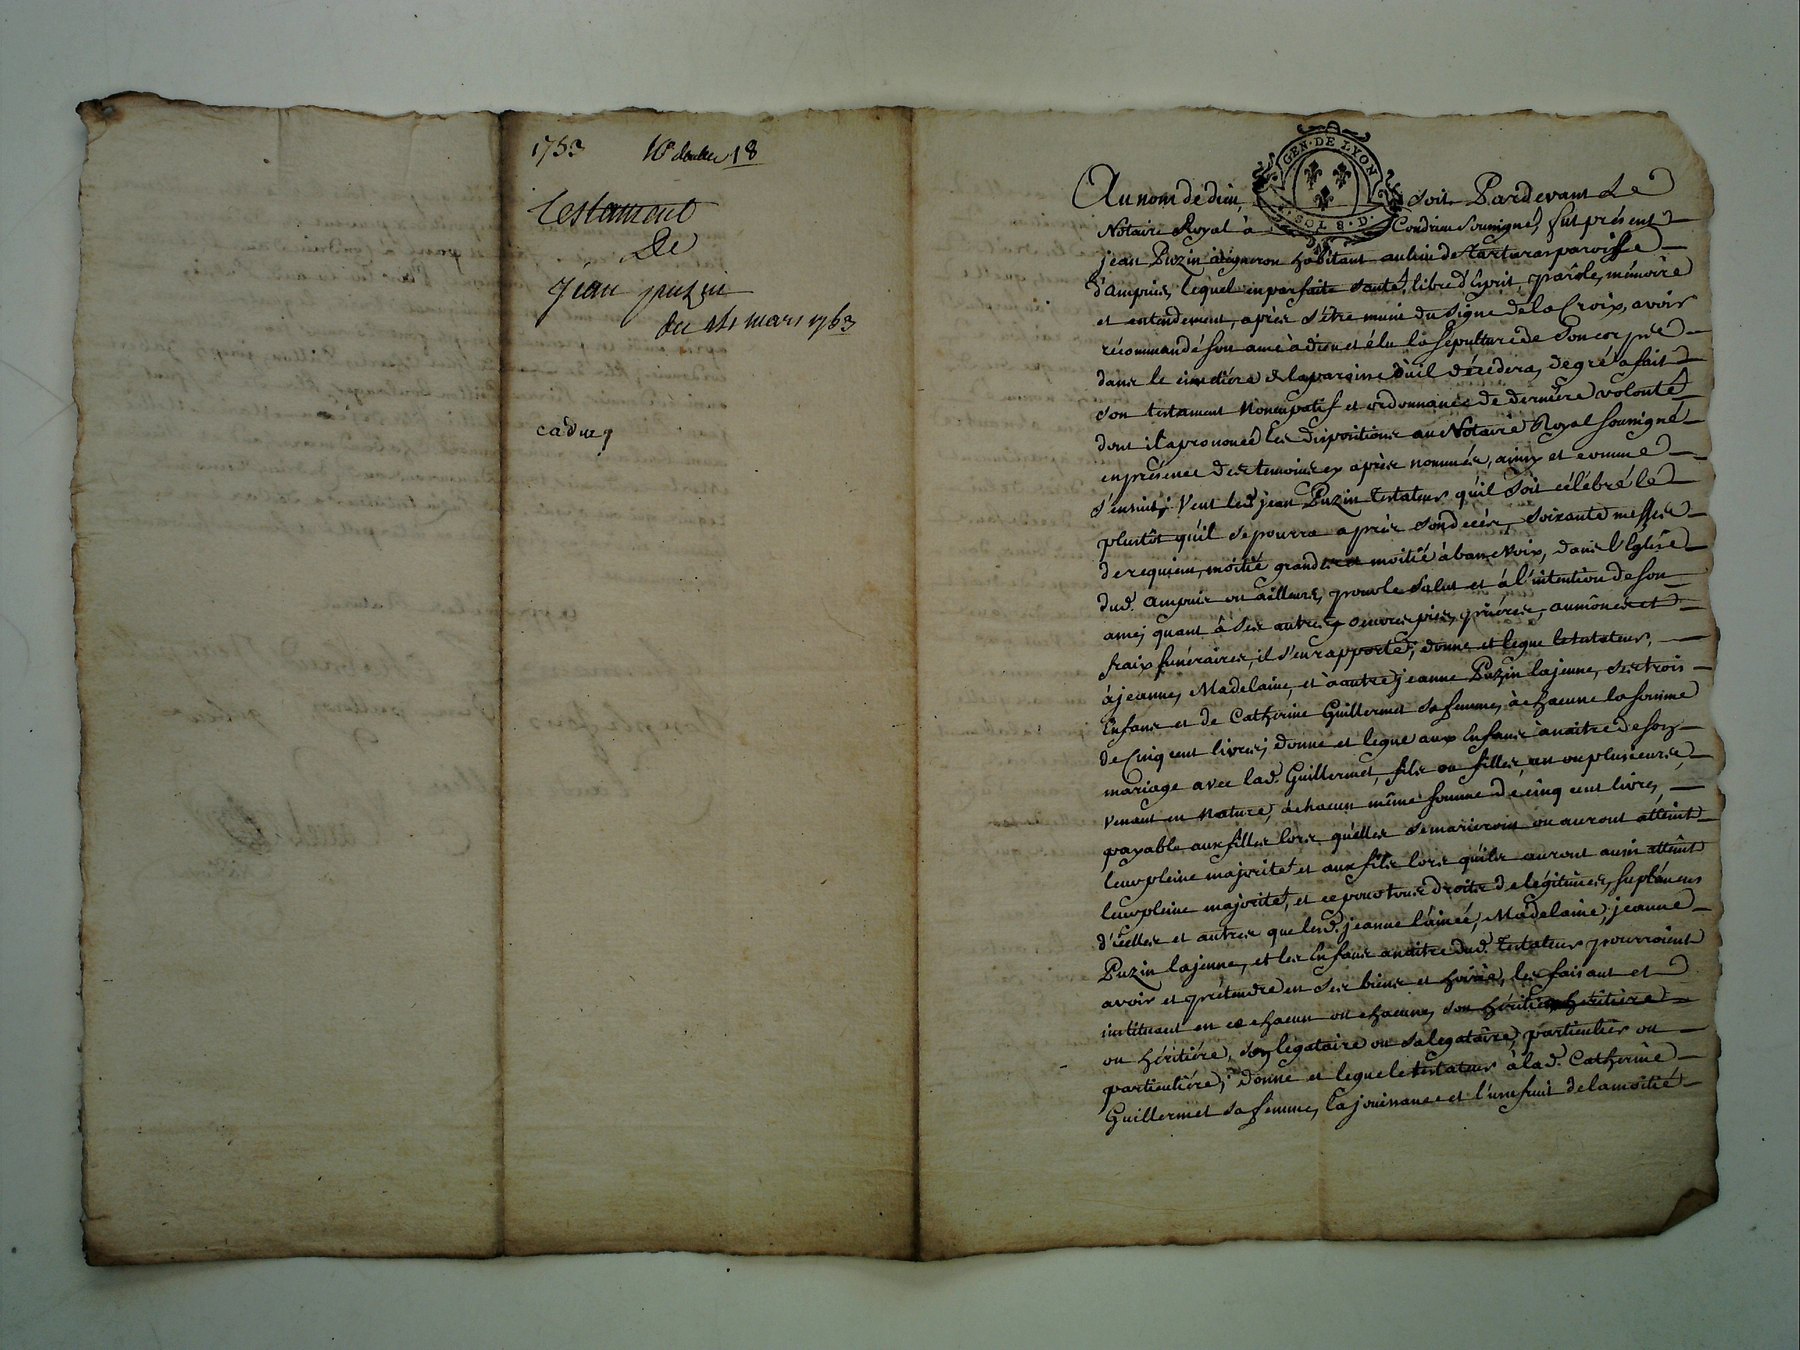 1763 18
Testament
De
jean puzin
du 14 mars 1763
caduq
GEN. DE LYON
SOLS. D.
Au nom de dieu, soit Pardevant Le
Notaire Royal à Condrieu soussigné, fut présent
jean Puzin vigneron habitant au lieu de Tartaras paroisse
d'ampuis, lequel en parfaite santé, libre d'Esprit, parole, mémoire
et entendement, après s'être muni du signe de la Croix, avoir
récommandé son ame à dieu et élu la sépulture de son corps
dans le cimetiére de la paroisse où il décédera, de gré a fait
son testament Noncupatif et ordonnance de derniére volonté
dont il a prononcé les dispositions au Notaire Royal soussigné
en présence des temoins cy après nommés, ainsy et comme
s'ensuit; Veut led. jean Puzin testateur qu'il soit célébré le
plustôt qu'il se pourra après son decés, soixante messes
de requiem, moitié grandes et moitié à basse Voix, dans l'Eglise
dud. ampuis ou ailleurs, pour le salut et à l'intention de son
ame; quant à ses autres oeuvres pies, priéres, aumônes et
fraix funéraires, il s'en rapporte; donne et legue le testateur,
à jeanne, Madelaine, et à autre jeanne Puzin la jeune, ses trois
Enfans et de Catherine Guillermet sa femme, à chacune la somme
de Cinq cent livres; donne et legue aux Enfans à naitre de son
mariage avec lad. Guillermet, fils ou filles, un ou plusieurs
venant en Nature, à chacun même somme de cinq cent livres,
payable aux filles lors qu'elles se marieront ou auront attéint
leur pleine majorité et aux fils lors qu'ils auront aussi attéint
leur pleine majorité, et ce pour tous droits de légitimes, suplémens
d'icelles et autres que lesd. jeanne l'ainée, Madelaine, jeanne
Puzin la jeune, et les Enfans à naitre dud. testateur pourroient
avoir et prétendre en ses biens et hoirie, les faisant et
instituant en ce chacun ou chacune, son héritier
ou héritiére, son légataire ou sa legataire, particulier ou
particuliére; donne et legue le testateur à lad. Catherine
Guillermet sa femme, la jouissance et l'usufruit de la moitié